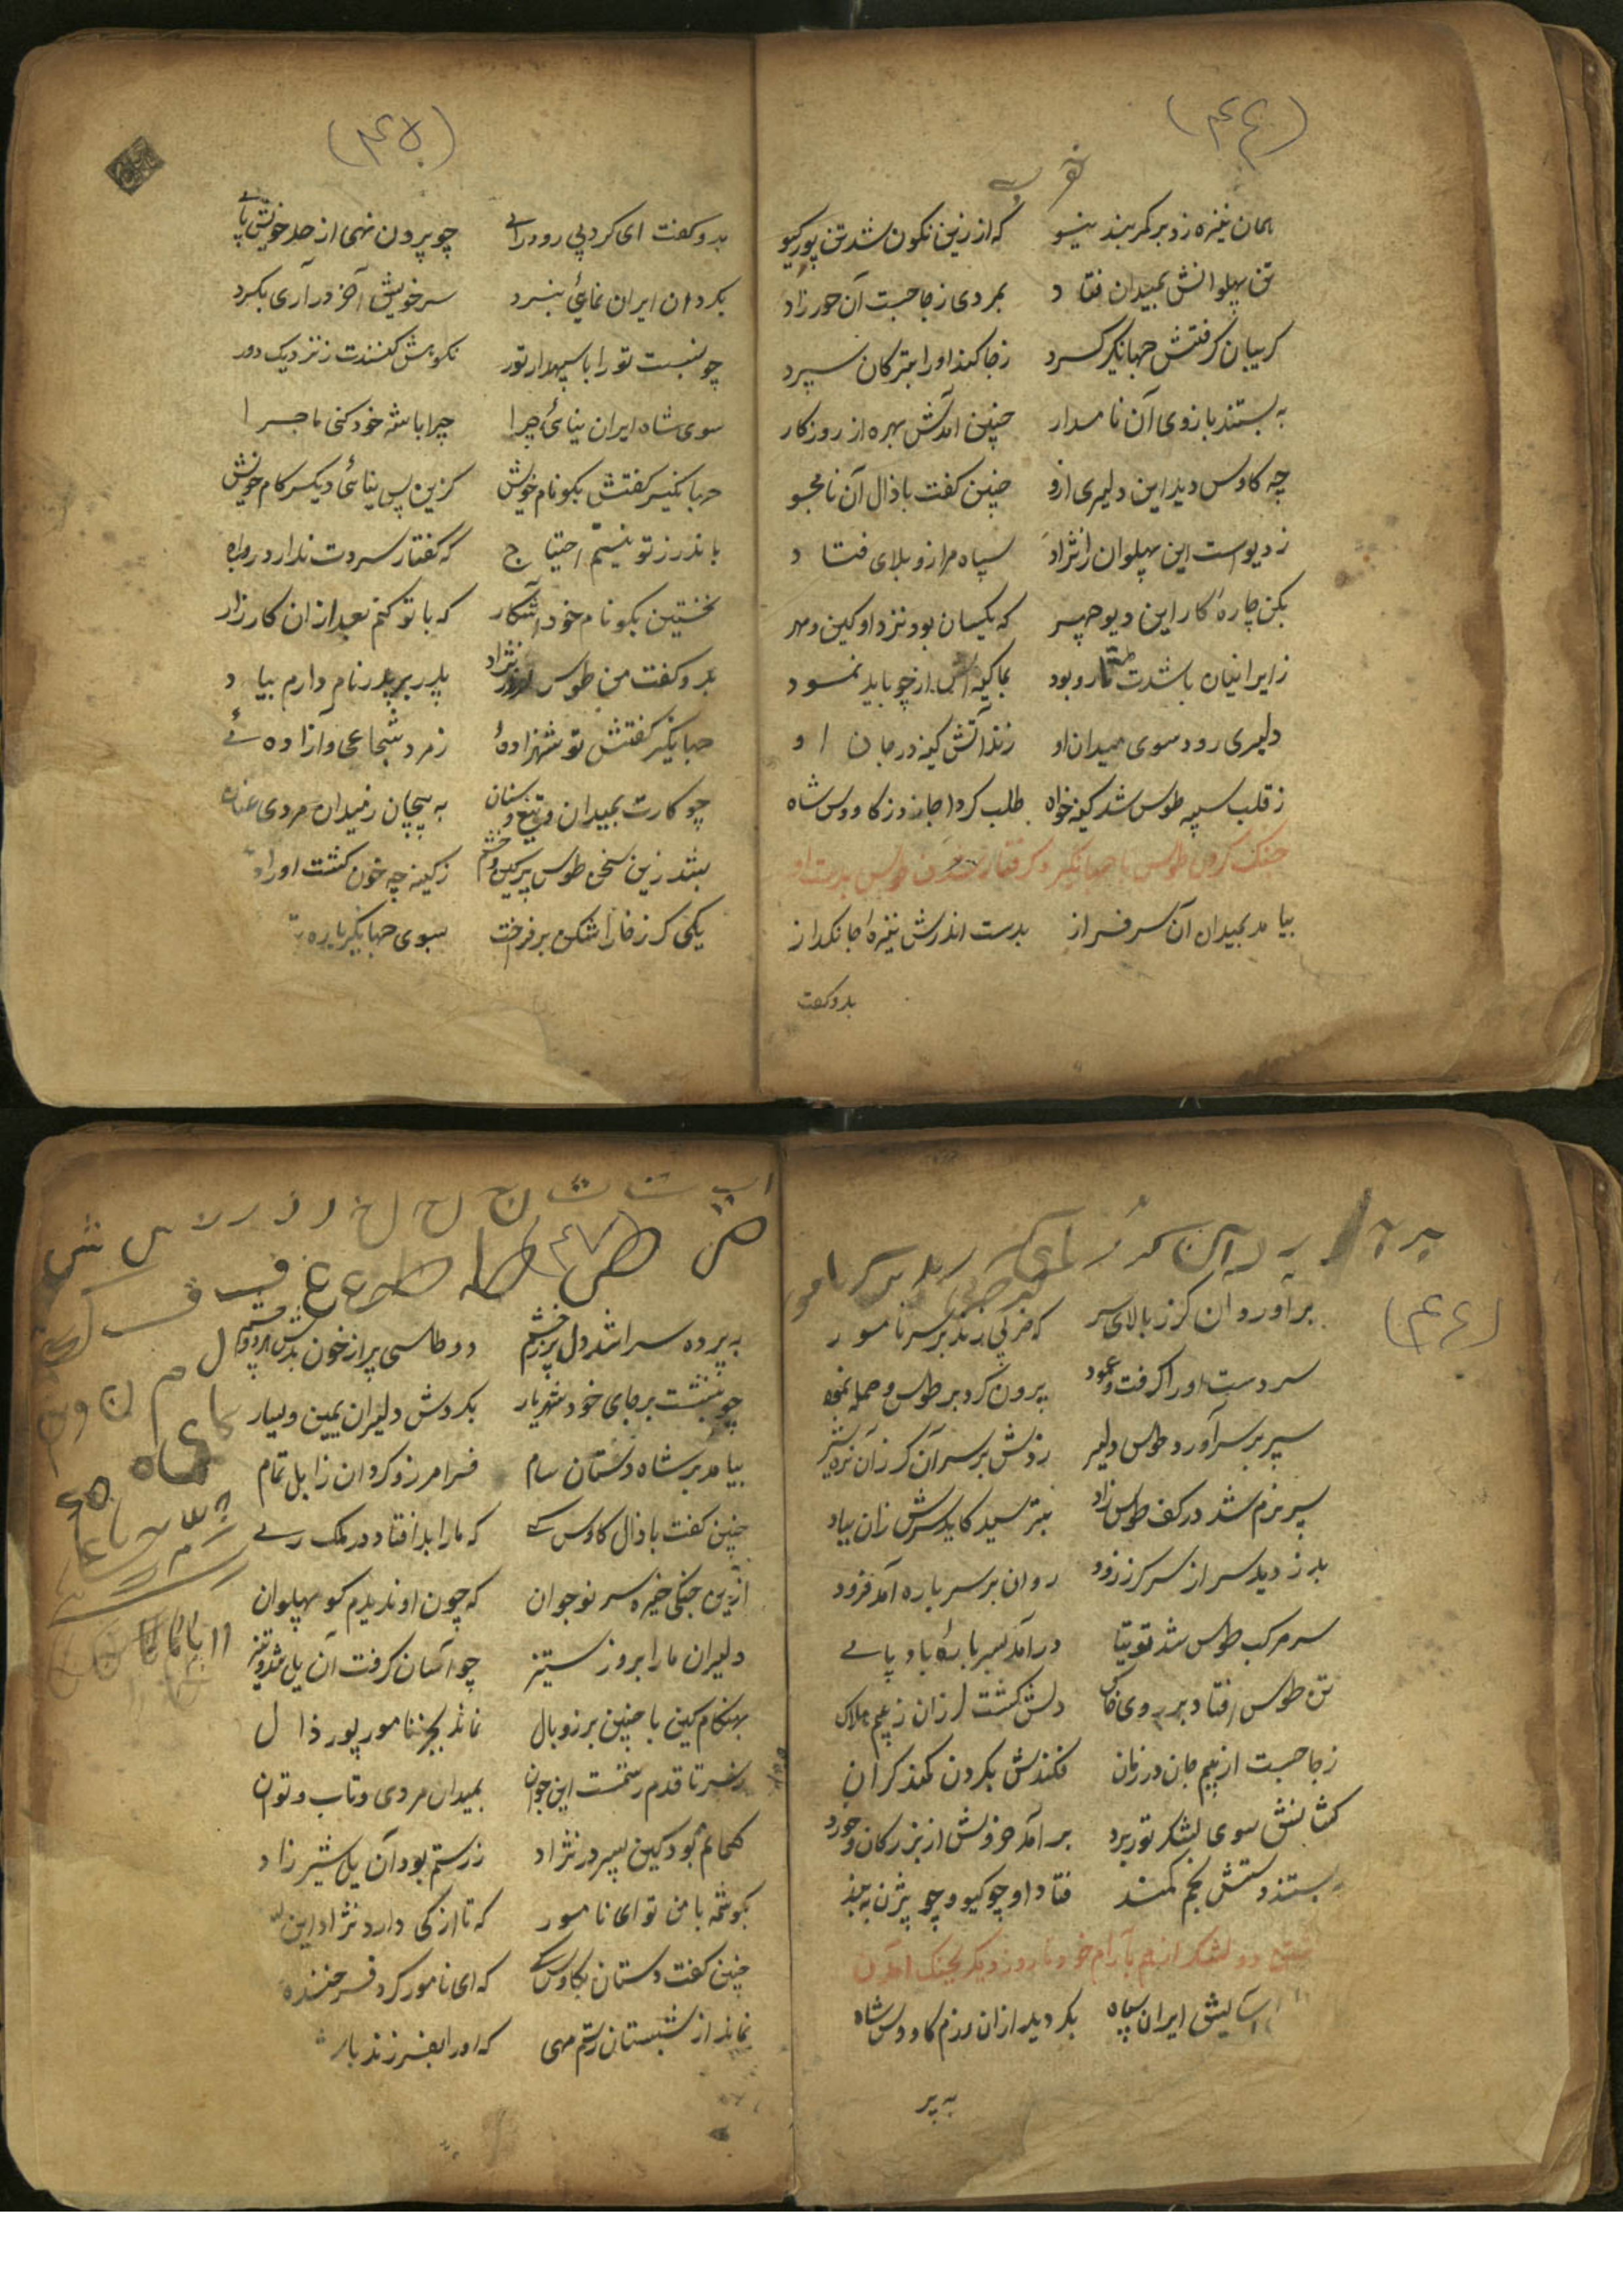 (۴۴)
همان نیزه زد بر کمربند نیو که از زین نکون شد تن پور کیو
تن پهلوانش بمیدان فتاد بمردی ز جا جست آن حور زاد
کریبان کرفتش جهانکیر کرد ز جا کند او را بترکان سپرد
به بستند بازوی آن نامدار چنین آمدش بهره از روزکار
چه کاوس دید این دلیری ازو چنین کفت با ذال آن نامجو
ز دیو است این پهلوان را نژاد سپاه مرا زو بلای فتاد
بکن چارهٔ کار این دیو چهر که یکسان بود نزد او کین و مهر
ز ایرانیان باشدت تار و بود بما کینه اش از چو باید نمود
دلیری رود سوی میدان او زند آتش کینه در جان او
ز قلب سپه طوس شد کینه خواه طلب کرد اجازه ز کاووس شاه
جنک کردن طوس با جهانکیر و کرفتار شدن طوس بدست او
بیامد بمیدان آن سرفراز بدست اندرش نیزهٔ جانکداز
بدو کفت
(۴۵)
بدو کفت ای کرد بی رود رای چو بیرون نهی از حد خویش پای
بکردان ایران نمائی نبرد سر خویش آخر در آری بکرد
چو نسبت تو را با سپهدار تور نکوهش کنندت ز نزدیک و دور
سوی شاه ایران نیائی چرا چرا با شه خود کنی ماجرا
جهانکیر کفتش بکو نام خویش کزین پس نیائی دیکر کام خویش
باندرز تو نیستم احتیاج که کفتار سردت ندارد رواج
نخستین بکو نام خود آشکار که با تو کنم بعد از ان کارزار
بدو کفت من طوس نوذر نژاد پدر بر پدر نام دارم بیاد
جهانکیر کفتش تو شهزادهٔ ز مرد شجاعی و آزادهٔ
چو کارت بمیدان و تیغ و سنان به پیچان ز میدان مردی عنان
بشد زین سخن طوس پر کین و خشم ز کینه چه خون کشت او را
یکی کرز خارا شکن بر فرخت سوی جهانکیر باره
(۴۶)
برآورد آن کرز بالای سر که ضربی زند بر سر نامور
سر دست او را کرفت و عمود برون کرد بر طوس و حمله نمود
سپر بر سر آورد طوس دلیر زدش بر سر آن کرز آن نره شیر
سپر نرم شد در کف طوس زاد بترسید کاید سرش زان بیاد
بدزدید سر از سر کرز زود روان بر سر باره آمد فرود
سر مرکب طوس شد توتیا درآمد بسر بارهٔ باد پای
تن طوس افتاد بر روی خاک دلش کشت لرزان ز بیم هلاک
ز جا جست از بیم جان در زمان فکندش بکردن کمند کران
کشانش سوی لشکر تور برد برآمد خروش از بزرکان و خورد
به بستند دستش بخم کمند فتاد او چو کیو و چو بیژن به بند
دو لشکر از هم بآرام خود تا روز دیکر بجنک آمدن
ایران سپاه بکردید از ان رزم کاووس شاه
به پر
(۴۷)
ا ب ت ث ج ح خ د ذ ر ز س ش
ص ض ط ظ ع غ ف ق ک
ل م ن و
ه ی
به پرده سرا شد دل پر ز خشم دو طاسی پر از خون بدش هر دو چشم
چو بنشست بر جای خود شهریار بکردش دلیران یمین و یسار
بیامد بر شاه دستان سام فرامرز و کردان زابل تمام
چنین کفت با ذال کاوس کی که ما را بد افتاد در ملک ری
ازین جنکی خیره سر نوجوان که چون او ندیدم کو پهلوان
دلیران ما را بروز ستیز چو آسان کرفت آن یل تند و تیز
بهنکام کین با چنین برز و بال نماند بجز نامور پور ذال
ز سر تا قدم رستمست این جوان بمیدان مردی و تاب و توان
کمانم بود کین پسر در نژاد ز رستم بود آن یل شیر زاد
بکوشه با من تو ای نامور که تا از که دارد نژاد این
چنین کفت دستان بکاوس کی که ای نامور کرد فرخنده
نماند از شبستان رستم مهی که او را بفرزند